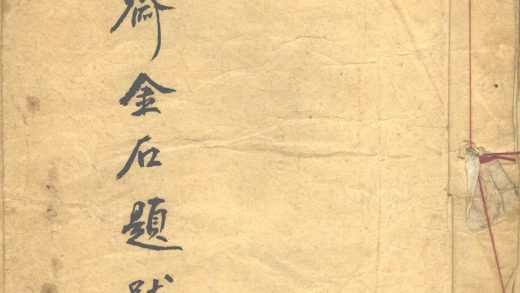 齋金石題跋